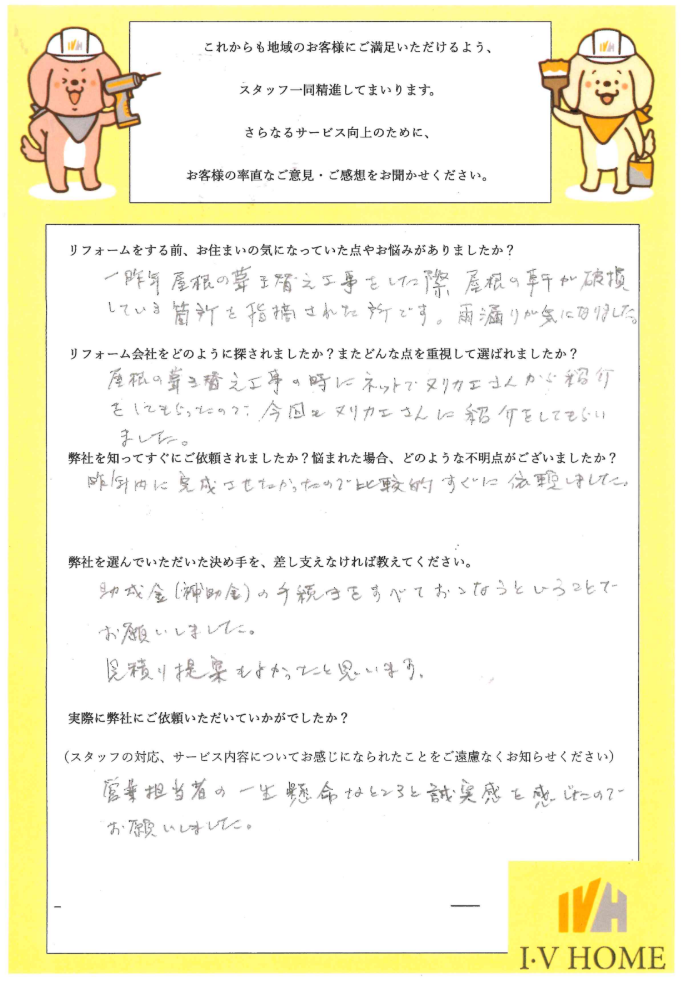 これからも地域のお客様にご満足いただけるよう、
スタッフ一同精進してまいります。
さらなるサービス向上のために、
お客様の率直なご意見・ご感想をお聞かせください。
リフォームをする前、お住まいの気になっていた点やお悩みがありましたか？
一昨年屋根の葺き替え工事をした際 屋根の軒が破損
している箇所を指摘された所です。雨漏りが気になりました。
リフォーム会社をどのように探されましたか？またどんな点を重視して選ばれましたか？
屋根の葺き替え工事の時にネットでヌリカエさんから紹介
をしてもらったので、今回もヌリカエさんに紹介をしてもらい
ました。
弊社を知ってすぐにご依頼されましたか？悩まれた場合、どのような不明点がございましたか？
昨年内に完成させたかったので比較的すぐに依頼しました。
弊社を選んでいただいた決め手を、差し支えなければ教えてください。
助成金(補助金)の手続きをすべておこなうということで
お願いしました。
見積り提案もよかったと思います。
実際に弊社にご依頼いただいていかがでしたか？
（スタッフの対応、サービス内容についてお感じになられたことをご遠慮なくお知らせください）
営業担当者の一生懸命なところと誠実感を感じたので
お願いしました。
IVH
I・V HOME